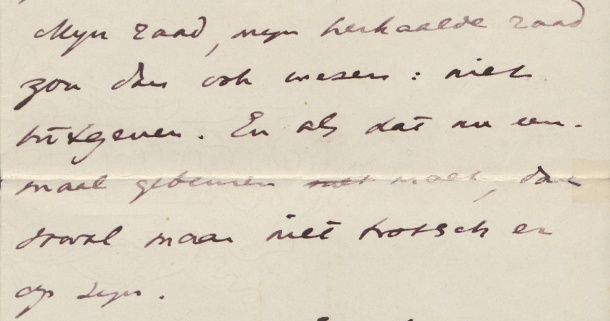 Mijn raad, mijn herhaalde raad
zou dan ook wezen: niet
uitgeven. En als dat nu een-
maal gebeuren moet, dan
maar niet trotsch er
op zijn.